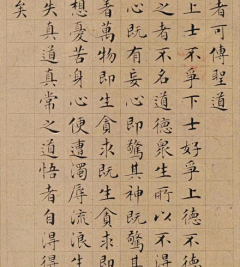 者可傳聖道
上士不爭下士好爭上德不德
之者不名道德衆生所以不得
心既有妄心即驚其神既驚
著萬物即生貪求既生貪求即
想憂苦身心便遭濁辱流浪生
失真道真常之道悟者自得得
矣